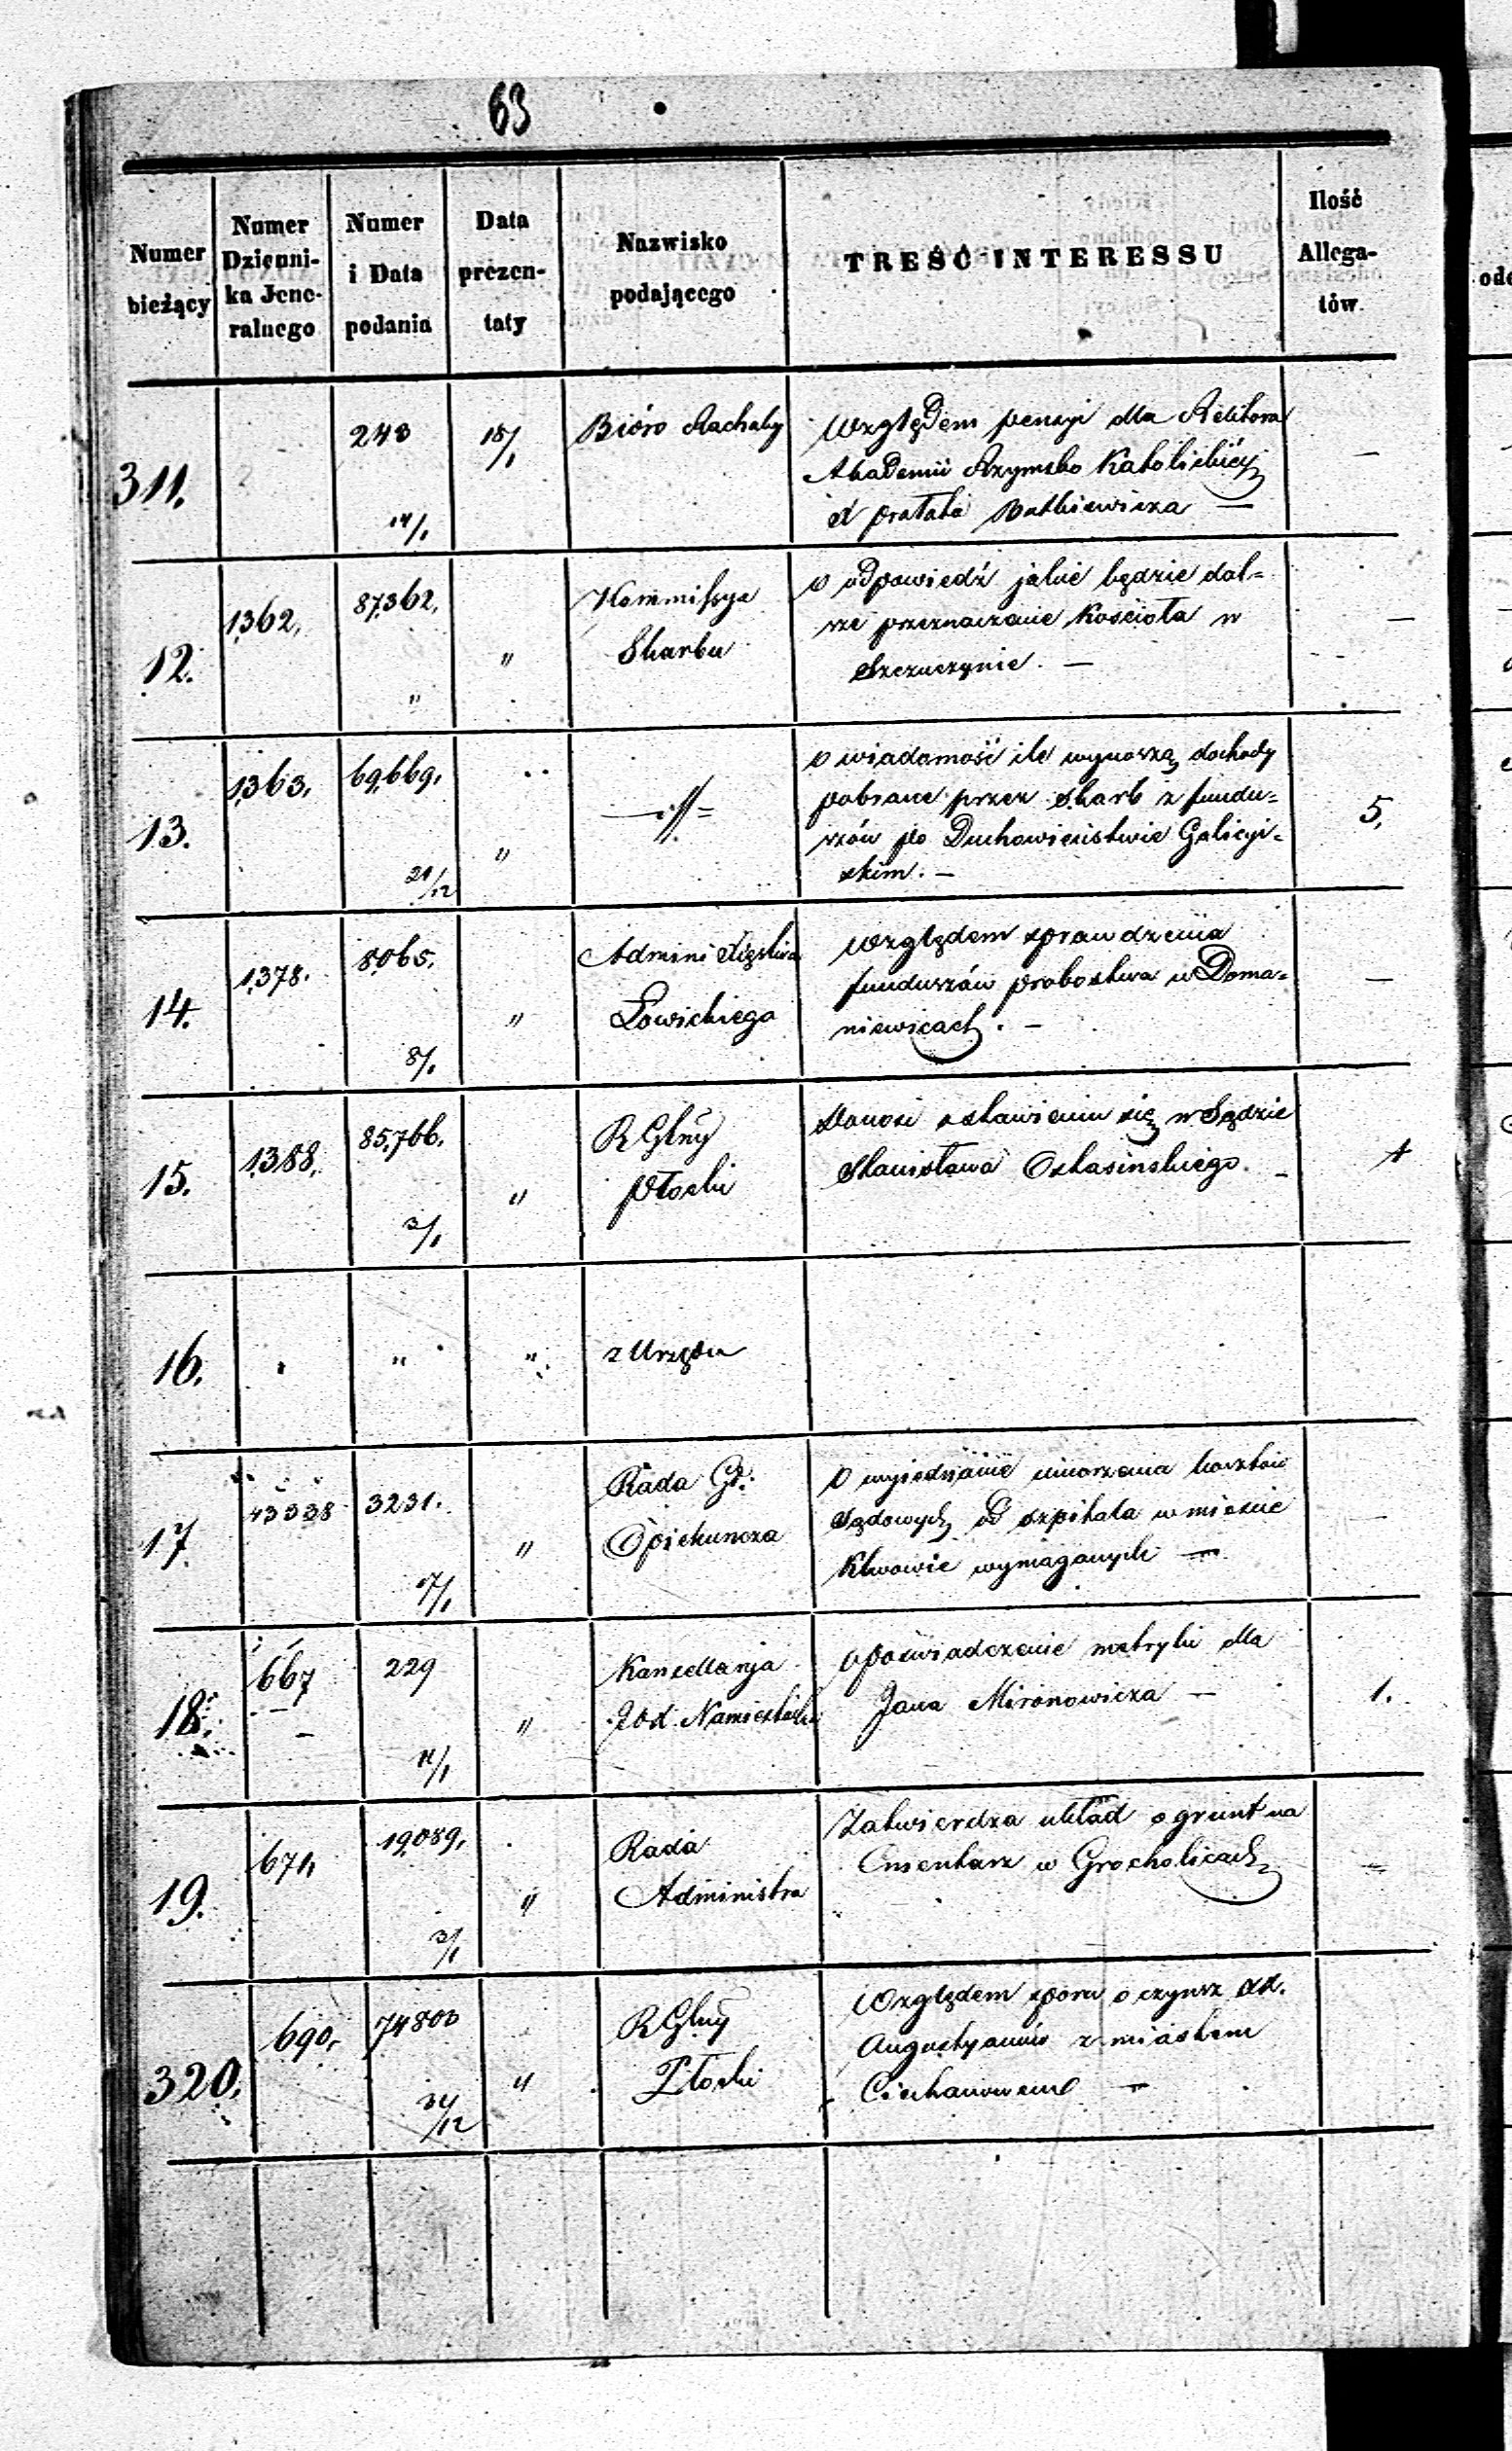 63
Numer bieżący
Numer Dzienni-ka Jene-ralnego
Numer i Data podania
Data prezen-taty
Nazwisko podającego
TREŚĆ INTERESSU
Ilość Allega-tów.
311. 248 14/1 18/1 Bióro Rachuby
Względem pensyi dla Rektora
Akademii Rzymsko Katolickiéj
X prałata —
12. 1362. 87362. " " Kommissya Skarbu
o odpowiedź jakie będzie dal=
sze przeznaczenie Kościoła w
Szczuczynie. — —
13. 1363. 69,669. 21/12 " —//=
o wiadomość ile wynoszą dochody
pobrane przez Skarb z fundu=
szów po Duchowieństwie Galicyi=
skim. — 5.
14. 1378. 8065. 8/1 " Admini Xięstwa Łowickiego
Względem sprawdzenia
funduszów probostwa w Doma=
niewicach. — —
15. 1388. 85,766. 3/1 " RGlny Płocki
Donosi o stawieniu się w Sądzie
Stanisława —
16. " " z Urzędu
17. 43338 3231. " Rada Gł. Opiekuncza
O wyjednanie umorzenia kosztów
Sądowych od szpitala w mieście
Klwowie wymaganych — —
18. 667 229 11/1 " Kancellarja Xcia Namiestnika
o poświadczenie metryki dla
Jana Mironowicza — 1.
19. 671. 19,089. 3/1 " Rada Administra
Zatwierdza układ o grunt na
Cmentarz w Grocholicach —
320. 690. 74803 31/12 " RGlny Płocki
Względem sporu o czynsz XX.
Augustyanów z miastem
Ciechanowem —